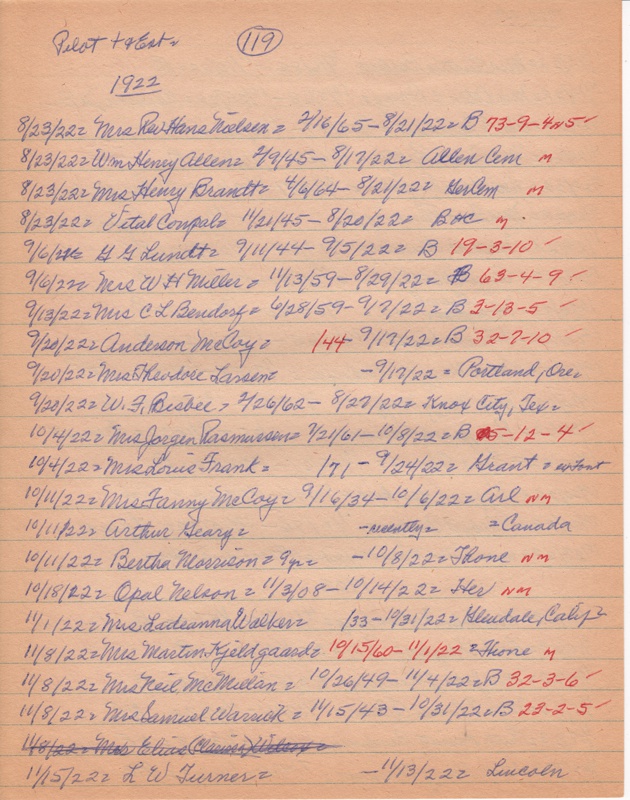 Pilot + & Ent = 119
1922
8/23/22 = Mrs Rev Hans Nielsen = 2/16/65 – 8/21/22 = B 73-9-4 n5 ✓
8/23/22 = Wm Henry Allen = 2/9/45 – 8/17/22 = Allen Cem M
8/23/22 = Mrs Henry Brandt = 4/6/64 – 8/21/22 = Ger Cem M
8/23/22 = Vital Coupal = 11/21/45 – 8/20/22 = B HC M
9/6/22 = G G Lundt = 9/11/44 – 9/5/22 = B 19-3-10 ✓
9/6/22 = Mrs W H Miller = 11/13/59 – 8/29/22 = B 63-4-9 ✓
9/13/22 = Mrs C L Bendorf = 6/28/59 – 9/7/22 = B 3-13-5 ✓
9/20/22 = Anderson McCoy = /44 9/17/22 = B 32-7-10 ✓
9/20/22 = Mrs Theodore Larsen = – 9/17/22 = Portland, Ore =
9/20/22 = W. F. Bisbee = 2/26/62 – 8/27/22 = Knox City, Tex =
10/4/22 = Mrs Jorgen Rasmussen = 7/21/61 – 10/8/22 = B 5-12-4 ✓
10/4/22 = Mrs Louis Frank = /71 – 9/24/22 = Grant =
10/11/22 = Mrs Fanny McCoy = 9/16/34 – 10/6/22 = Arl NM
10/11/22 = Arthur Geary = – recently = = Canada
10/11/22 = Bertha Morrison = 9 yr = – 10/8/22 = Thone NM
10/18/22 = Opal Nelson = 11/3/08 – 10/14/22 = Her NM
11/1/22 = Mrs Ladeanna Walker = /33 – 10/31/22 = Glendale, Calif =
11/8/22 = Mrs Martin Kjeldgaard = 10/15/60 – 11/1/22 = Thone M
11/8/22 = Mrs Neil McMillan = 10/26/49 – 11/4/22 = B 32-3-6 ✓
11/8/22 = Mrs Samuel Warrick = 11/15/43 – 10/31/22 = B 23-2-5 ✓
11/8/22 = Mrs Elias (Clarissa) Wilcox =
11/15/22 = L W Turner = – 11/13/22 = Lincoln